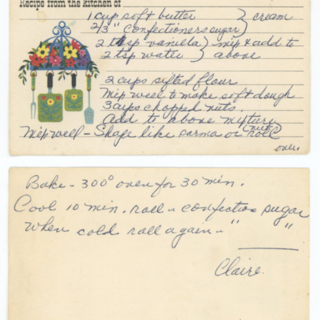 Recipe from the kitchen of
1 cup soft butter } cream
2/3 " confectioners sugar
2 tsp vanilla } mix & add to
2 tsp water above
2 cups sifted flour
Mix well to make soft dough
3 cups chopped nuts.
Add to above mixture
Mix well - Shape like parma or roll
over
Bake - 300° oven for 30 min.
Cool 10 min. roll in confection sugar
When cold roll again - " "
Claire